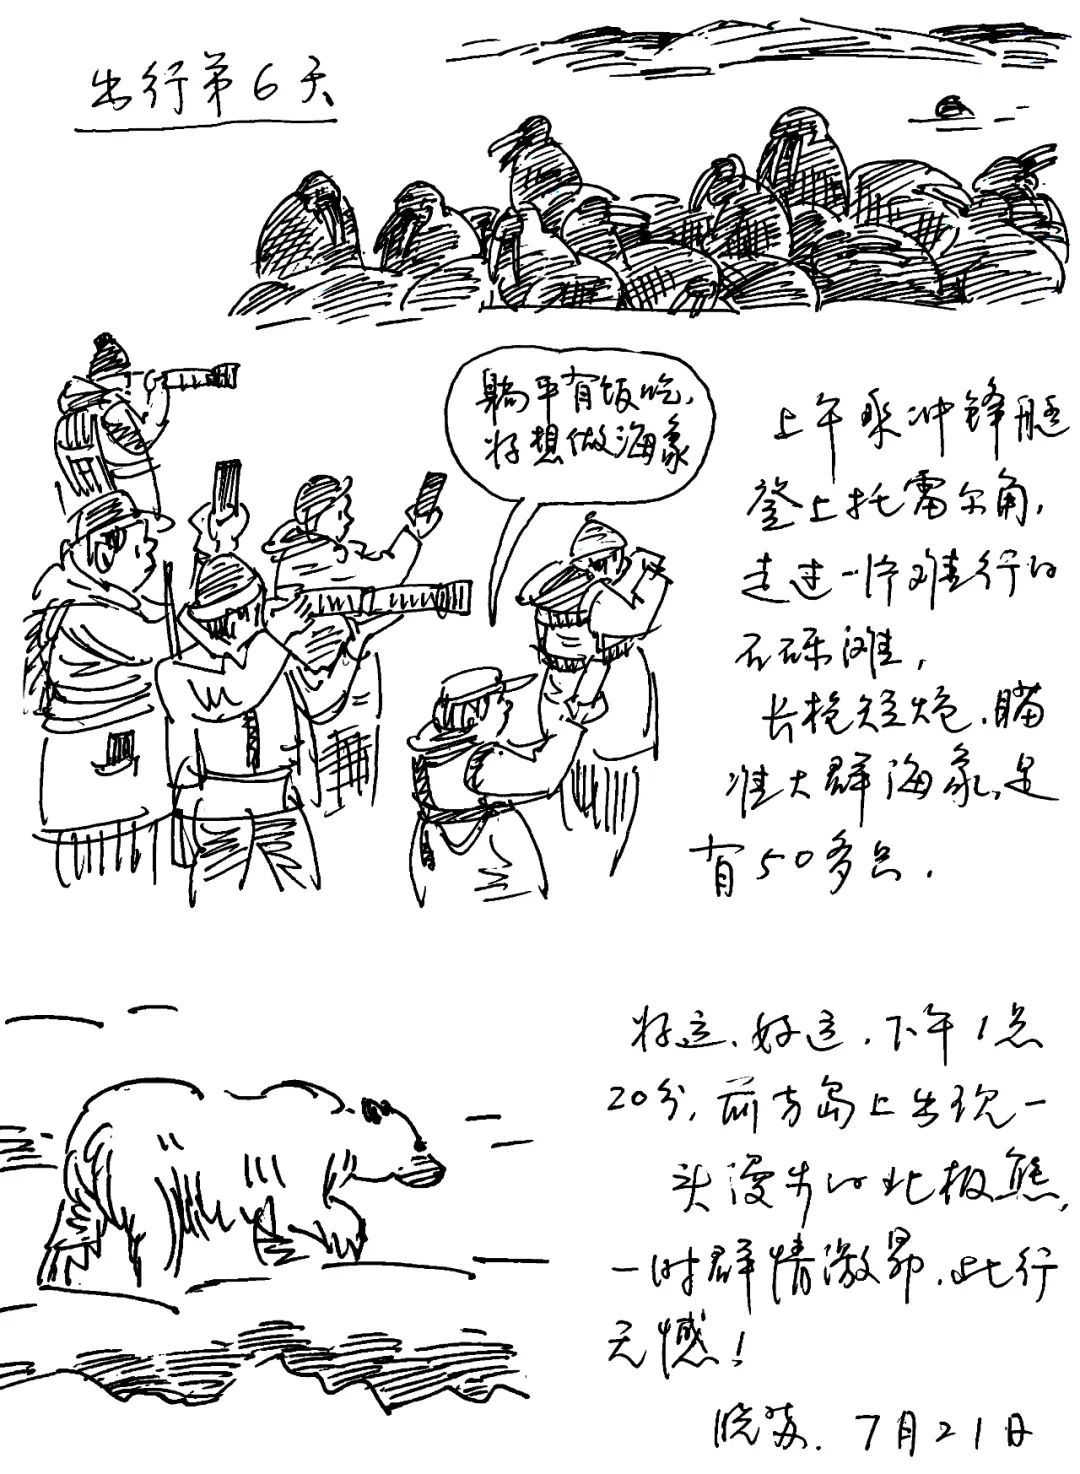 出行第6天
躺平有饭吃,
好想做海象
上午乘冲锋艇
登上托雷尔角,
走过一片难行的
石砾滩,
长枪短炮,瞄
准大群海象,足
有50多只.
好运、好运,下午1点
20分,前方岛上出现一
头漫步的北极熊,
一时群情激昂,此行
无憾!
晓苏.7月21日